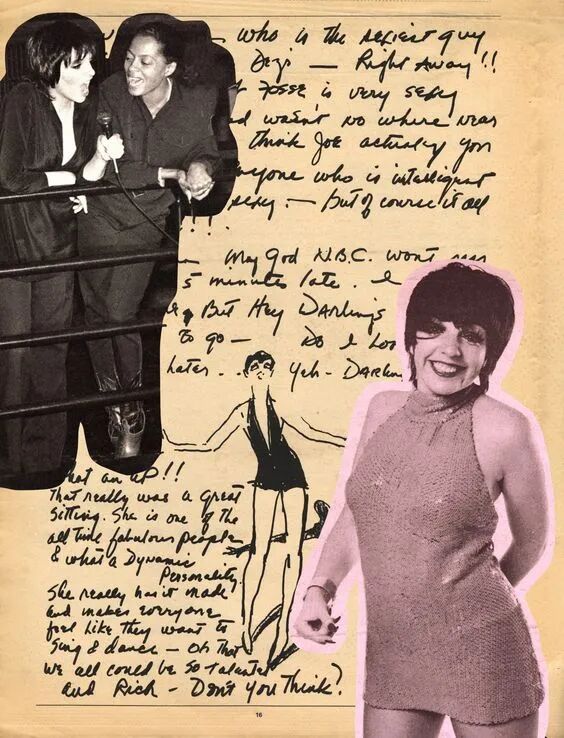 — who is the sexiest guy
— Right Away!!
Fosse is very sexy
wasn't no where near
Think Joe actually you
anyone who is intelligent
sexy — But of course it all
!!!
— My God N.B.C. won't
5 minutes late. I
But Hey Darlings
to go — Do I
Later .. Yeh - Darlin
What an up!!
That really was a great
Sitting. She is one of the
all time fabulous people
& what a Dynamic
Personality
She really has it made
and makes everyone
feel like they want to
Sing & dance — Oh that
we all could be so talented
and Rich — Don't You Think?
16